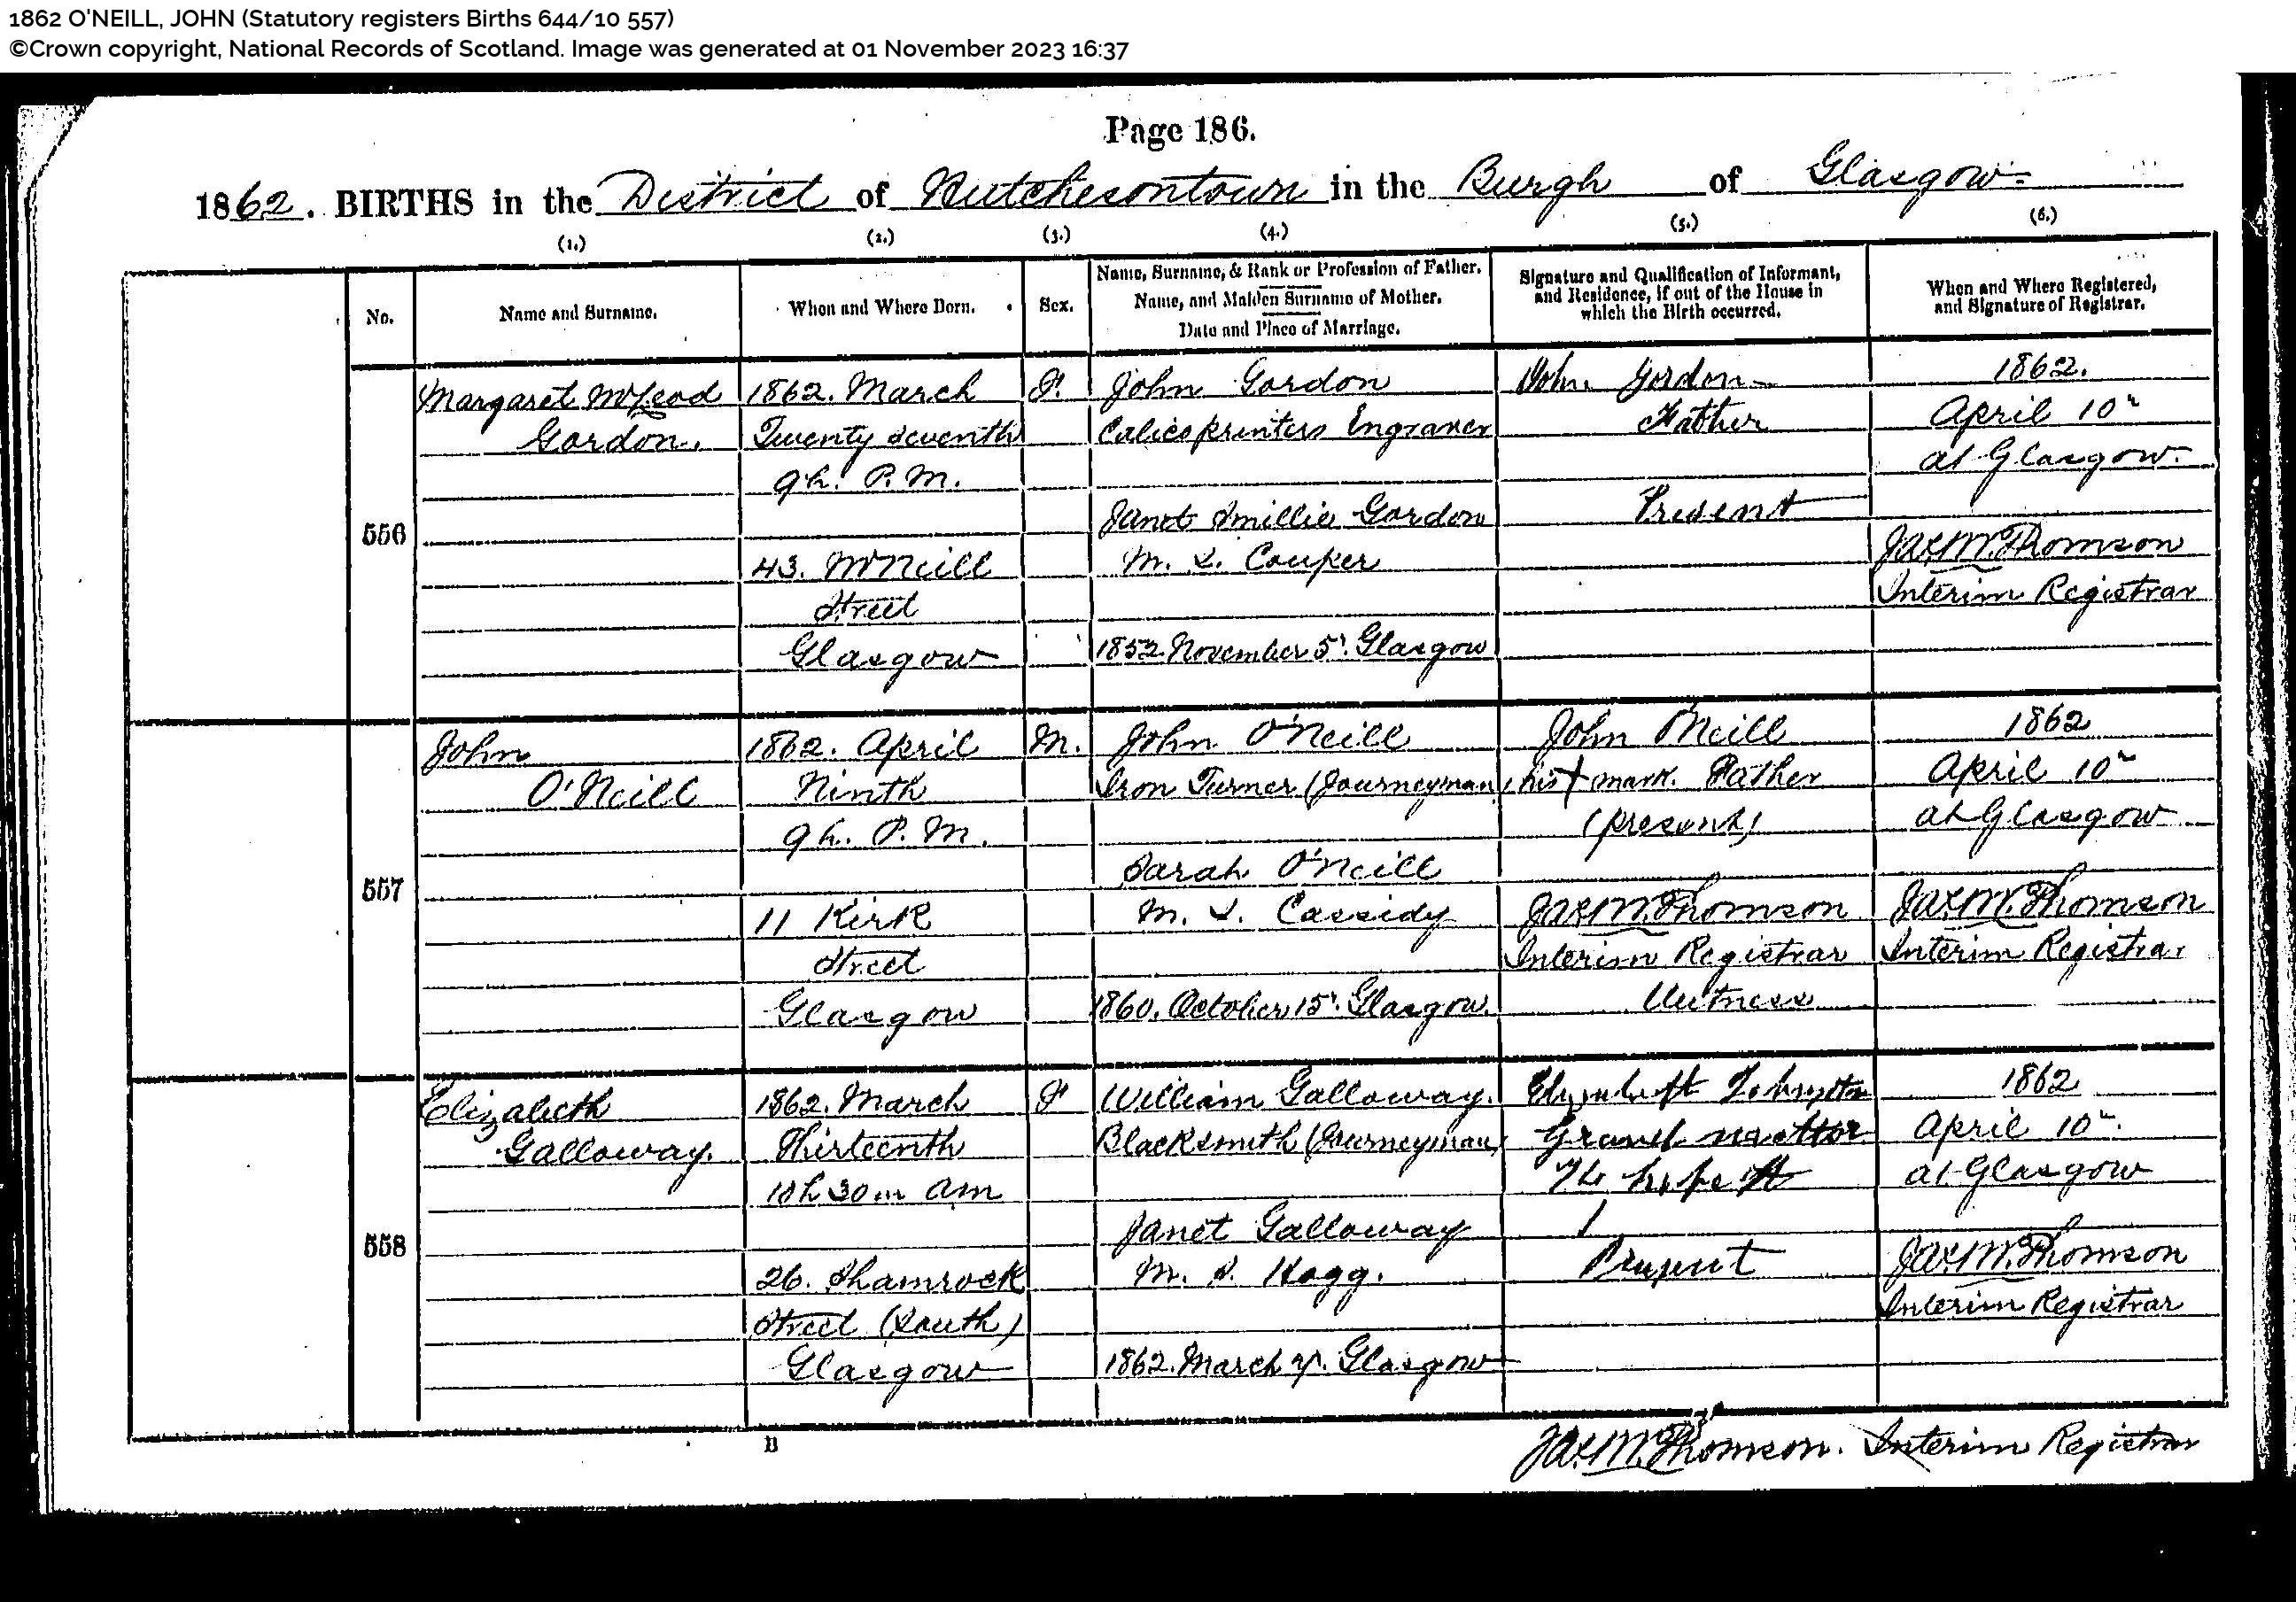 1862 O'NEILL, JOHN (Statutory registers Births 644/10 557)
©Crown copyright, National Records of Scotland. Image was generated at 01 November 2023 16:37
Page 186.
1862. BIRTHS in the District of Hutchesontown in the Burgh of Glasgow.
(1.) (2.) (3.) (4.) (5.) (6.)
No.
Name and Surname.
When and Where Born.
Sex.
Name, Surname, & Rank or Profession of Father.
Name, and Maiden Surname of Mother.
Date and Place of Marriage.
Signature and Qualification of Informant,
and Residence, if out of the House in
which the Birth occurred.
When and Where Registered,
and Signature of Registrar.
556
Margaret McLeod
Gordon.
1862. March
Twenty seventh
9h. P.M.
43. McNeill
Street
Glasgow
F.
John Gordon
Calicoprinters Engraver
Janet Smillie Gordon
M. S. Couper
1852. November 5th. Glasgow
John Gordon
Father
Present
1862.
April 10th
at Glasgow.
Jas. M. Thomson
Interim Registrar
557
John
O'Neill
1862. April
Ninth
9h. P.M.
11 Kirk
Street
Glasgow
M.
John O'Neill
Iron Turner (Journeyman)
Sarah O'Neill
M. S. Cassidy
1860. October 15th. Glasgow.
John O'Neill
his X mark. Father
(present)
Jas. M. Thomson
Interim Registrar
Witness
1862
April 10th
at Glasgow
Jas. M. Thomson
Interim Registrar
558
Elizabeth
Galloway.
1862. March
Thirteenth
10h 30m am
26. Shamrock
Street (South)
Glasgow
F
William Galloway.
Blacksmith (Journeyman)
Janet Galloway
M. S. Hogg.
1862. March Glasgow
Grand mother
Present
1862
April 10th.
at Glasgow
Jas. M. Thomson
Interim Registrar
B
Jas. M. Thomson. Interim Registrar